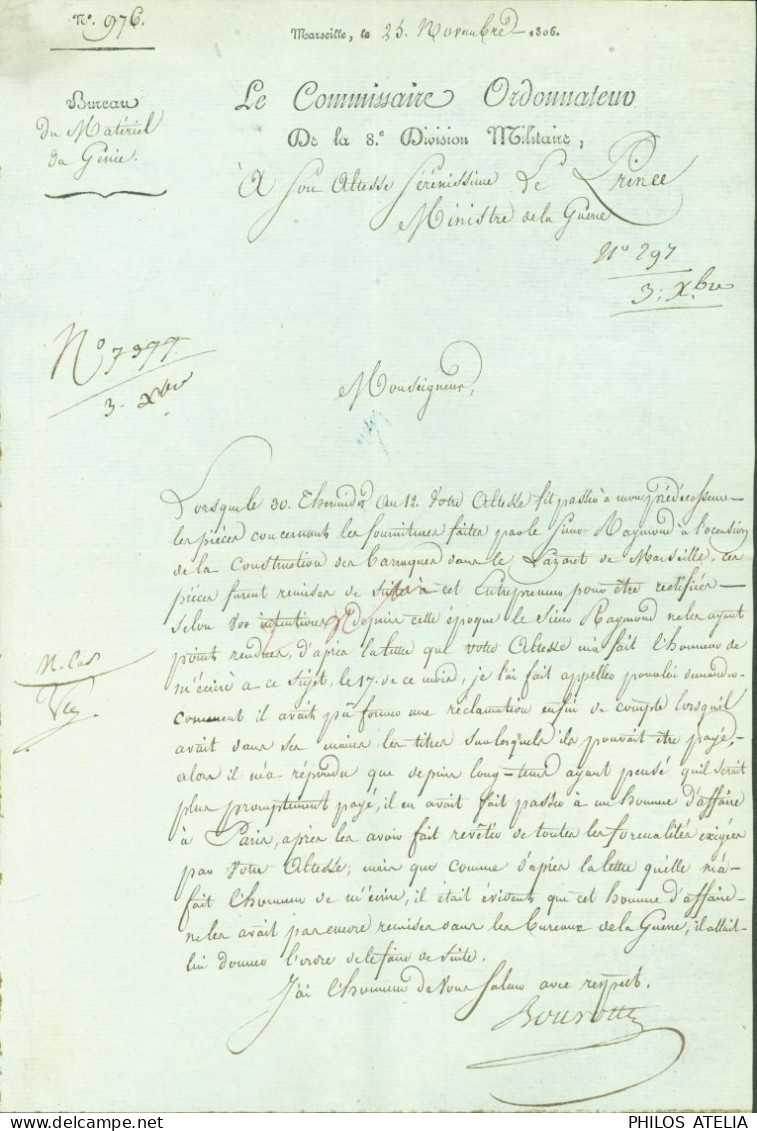 N° 976.
Marseille, le 25. Novembre 1806.
Bureau
du Matériel
du Génie.
Le Commissaire Ordonnateur
De la 8.e Division Militaire,
A Son Altesse Sérénissime Le Prince
Ministre de la Guerre
N° 297
3. Xbre
N° 7977.
3. Xbre
Monseigneur,
Lorsque le 30. Thermidor an 12. Votre Altesse fit passer à mon prédécesseur
les pièces concernant les fournitures faites par le Sieur Raymond à l'occasion
de la Construction des barraques dans le Lazaret de Marseille, ces
pièces furent remises de suite à cet Entrepreneur pour être rectifiées
selon vos intentions, depuis cette époque le Sieur Raymond ne les ayant
point rendues, d'après la lettre que votre Altesse m'a fait l'honneur de
m'écrire à ce sujet, le 17. de ce mois, je l'ai fait appeller pour lui demander
comment il avait pu former une réclamation enfin de compte lorsqu'il
avait dans ses mains les titres sur lesquels ils pouvait être payé,
alors il m'a répondu que depuis long-tems ayant pensé qu'il serait
plus promptement payé, il en avait fait passer à un homme d'affaire
à Paris, après les avoir fait revêtir de toutes les formalités exigées
par Votre Altesse, mais que comme d'après la lettre qu'elle m'a
fait l'honneur de m'écrire, il était évident que cet homme d'affaire
ne les avait pas encore remises dans les bureaux de la Guerre, il allait
lui donner l'ordre de le faire de suite.
J'ai l'honneur de vous saluer avec respect.
PHILOS ATELIA